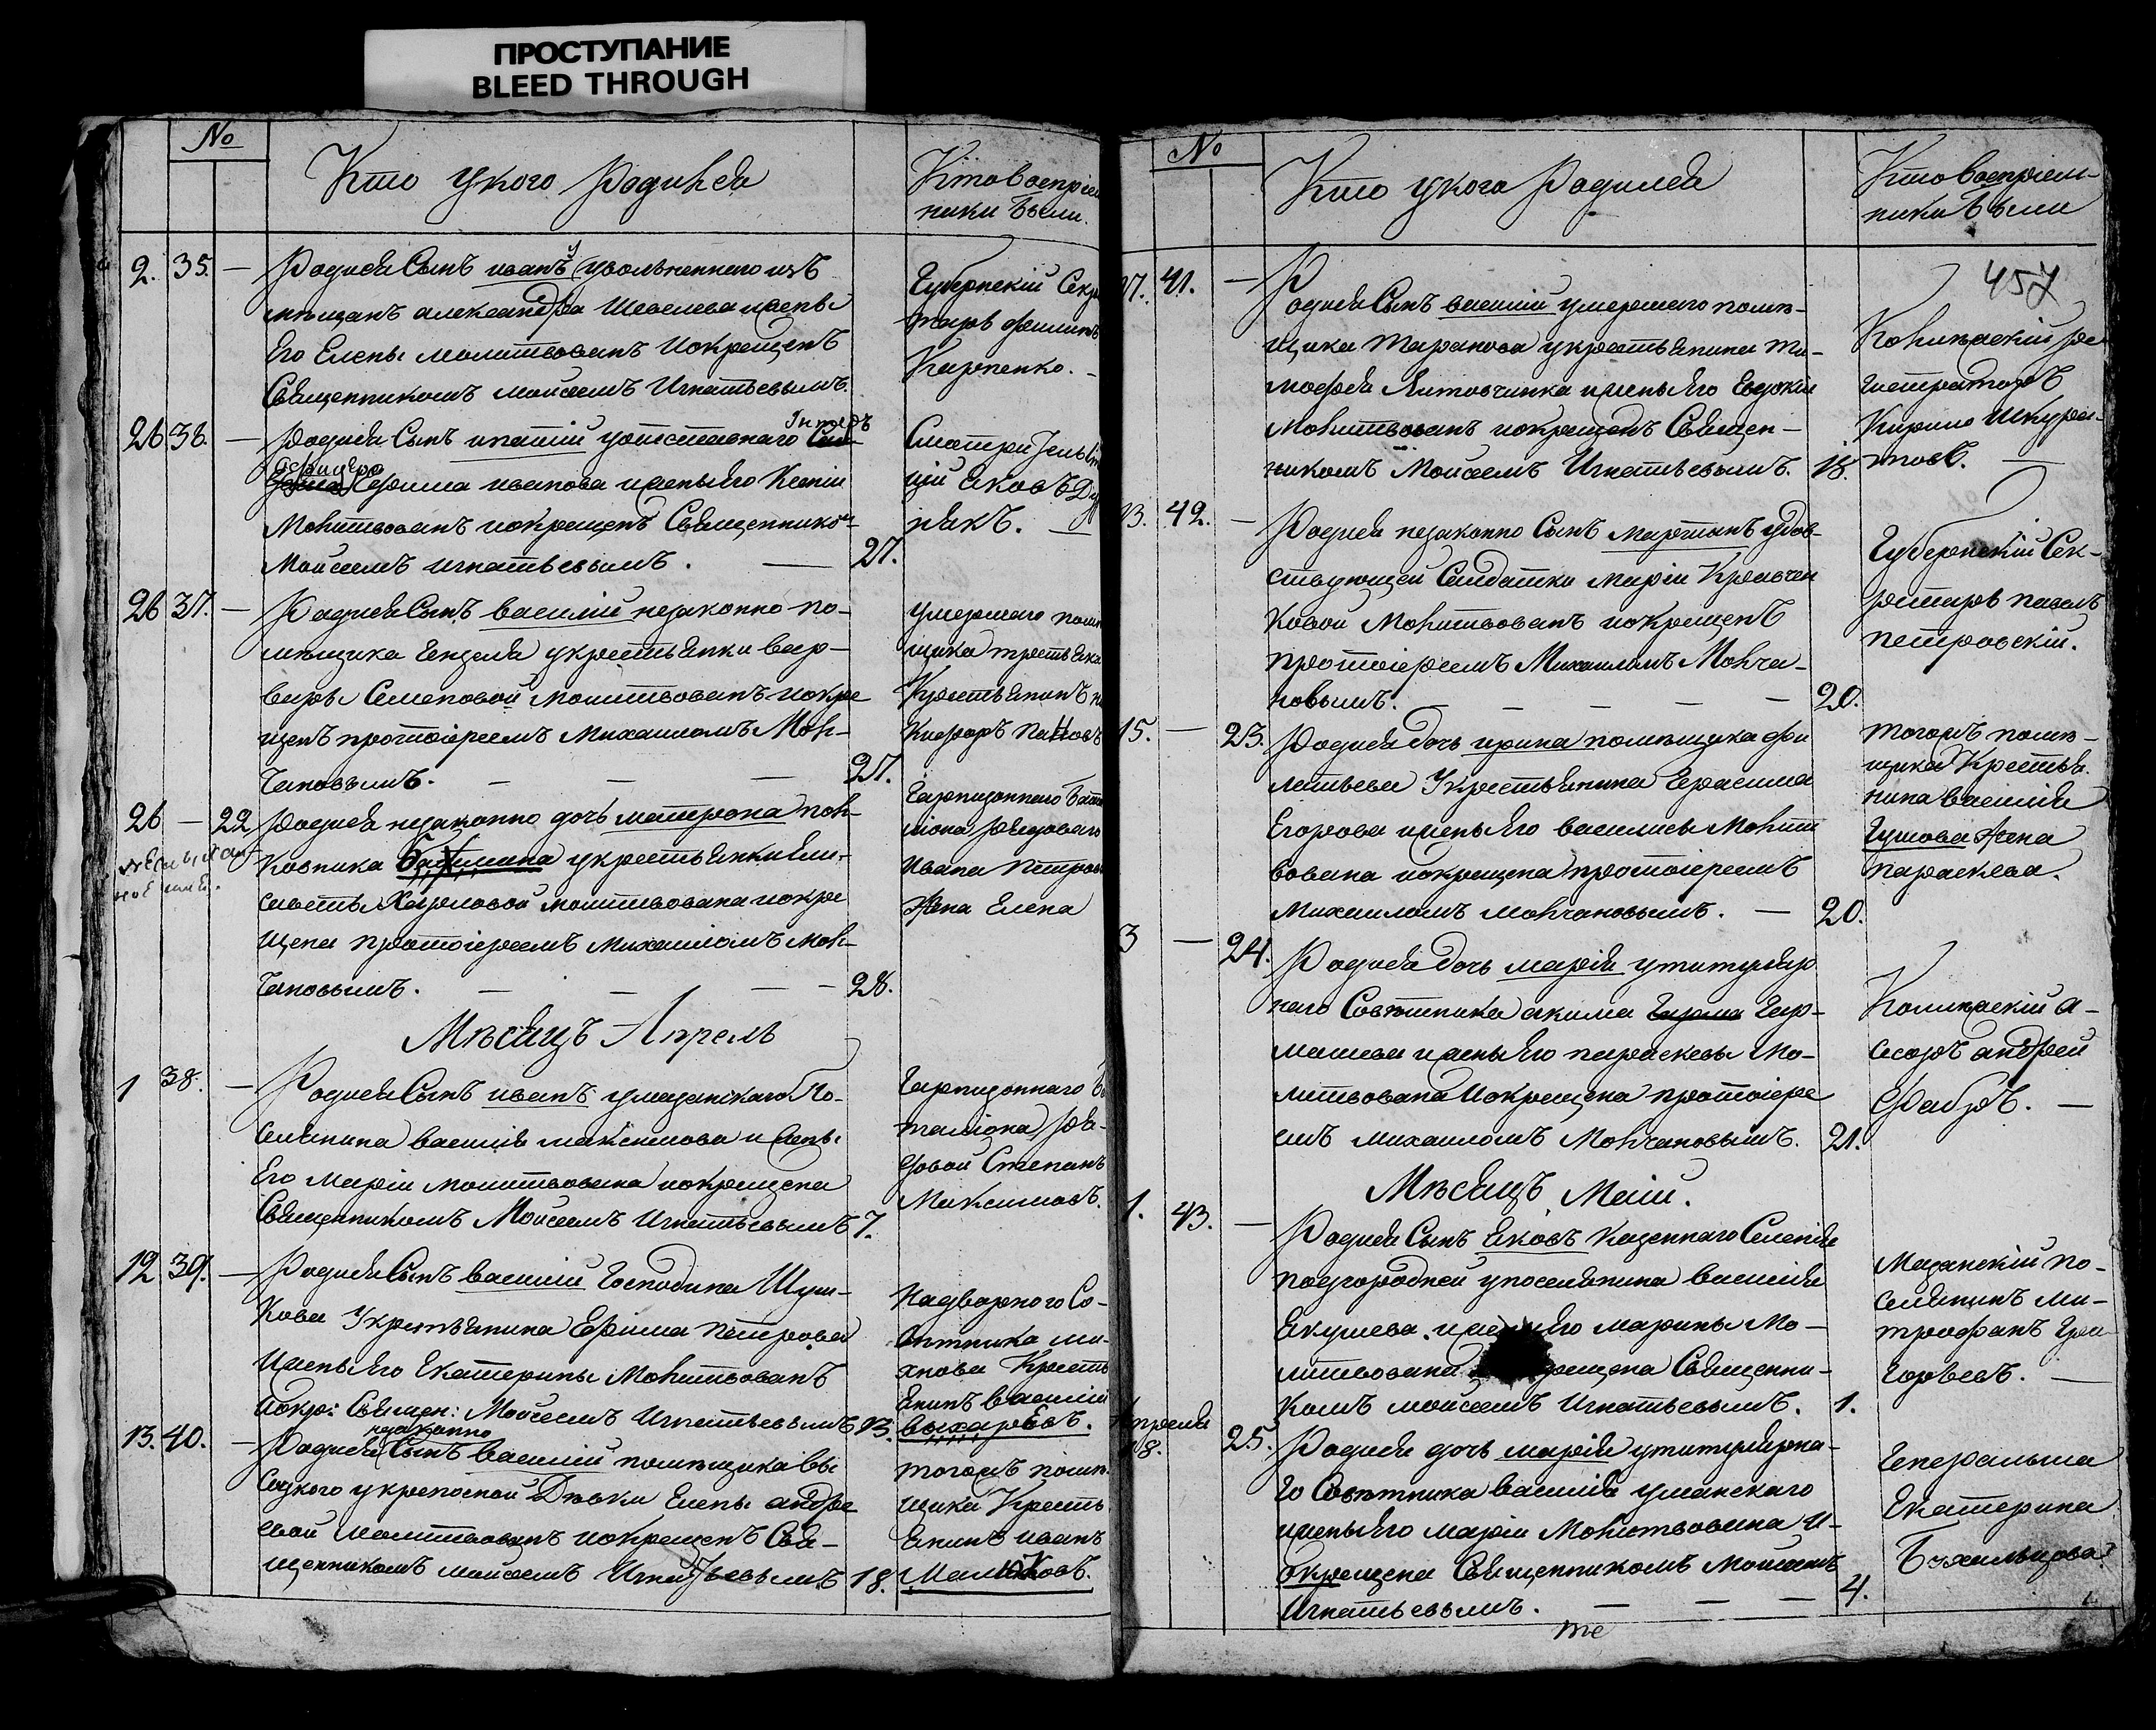 ПРОСТУПАНИЕ
BLEED THROUGH
№
Кто укого Родился
Кто Восприем
ники были.
2. 35. — Родися Сынъ иванъ уволненнаго изъ
мещанъ александра Шевелева ижены
Его Елены молитвованъ Искрещенъ
Священникомъ моисеемъ Игнатьевымъ.
Губернский Секре
тарь филипъ
Карпенко. —
26 36. — Родися Сынъ ипатий уотставнаго
Ефима иванова ижены Его Ксении
Молитвованъ иокрещенъ Священником
Моисеемъ игнатьевымъ. — 27.
Смотритель
яковъ
някъ. —
26 37. — Родися Сынъ василий незаконно по-
мѣщика Генцеля укрестьянки вар-
вары Семеновой молитвованъ иокре
щенъ протоиереемъ Михаиломъ Мол-
чановымъ. — — — 27.
умершего помѣ
щика
Крестьянинъ ни
кифоръ Пановъ
26 — 22 Родися незаконно дочь матрона пол-
ковника укрестьянки Ели-
саветы Карповой молитвована иокре
щена протоиереемъ Михаиломъ Мол-
чановымъ. — — — 28.
Гарнизоннаго бата
лиона рядоваго
Ивана Петрова
Жена Елена
Мѣсяцъ Апрель
1 38. — Родися Сынъ иванъ умазанскаго По-
селянина василия максимова и жены
Его Марии молитвована иокрещена
Священникомъ Моисеемъ Игнатьевымъ 7.
Гарнизоннаго ба
талиона ря-
довой Степанъ
Максимовъ.
12 39. — Родися Сынъ василий Господина Шуш-
кова Укрестьянина Ефима Петрова
Ижены Его Екатерины Молитвованъ
иокр: Священ: Моисеемъ Игнатьевымъ 13.
Надворного Со-
вѣтника ми-
хнова Кресть
янинъ василий
13. 40. — Родися незаконно Сынъ василий помѣщика Вы
соцкого укрепосной Дѣвки Елены андре
евой молитвованъ иокрещенъ Свя-
щенникомъ моисеемъ Игнатьевымъ 18.
тогожъ помѣ
щика Кресть
янинъ иванъ
№
Кто укого Родился
Кто восприем-
ники были
457
27. 41. — Родися Сынъ василий умершего помѣ-
щика Таранова укрестьянина Ти-
мофея Литовченка ижены Его Евдокии
Молитвованъ иокрещенъ Священ-
никомъ Моисеемъ Игнатьевымъ. 18.
Колижский ре
гистраторъ
Кирило Шкура-
товъ. —
13. 42. — Родися незаконно Сынъ мартынъ увдов-
ствующей Салдатки Марии Кравчен
ковой Молитвованъ иокрещенъ
протоиереемъ Михаиломъ Молча-
новымъ. — — — — 20.
Губернский Сек-
ретарь павелъ
петровский.
15. — 23. Родися дочь ирина помѣщика фи
латьева Укрестьянина Герасима
Егорова ижены Его василисы Молит
вована иокрещена протоиереемъ
Михаиломъ молчановымъ. — 20.
тогожъ помѣ-
щика Крестья-
нина василия
Гушова Жена
параскева.
3 — 24. Родися дочь мария утитуляр
наго Совѣтника акима Гар-
машева ижены Его параскевы Мо-
литвована Иокрещена протоиере
емъ михаиломъ Молчановымъ. 21.
Колижский а-
сесоръ андрей
Фабръ. —
Мѣсяцъ Маии.
1. 43. — Родися Сынъ яковъ Казеннаго Селения
подгородней упоселянина василия
якушева ижены Его марины Мо-
литвована крещена Священни-
комъ моисеемъ Игнатьевымъ. 1.
Мазанский по-
селянинъ Ми-
трофанъ Гри-
горьевъ. —
Апреля
18. 25. Родися дочь мария утитулярна-
го Совѣтника василия уманскаго
ижены Его марии Молитвована И-
окрещена Священникомъ Моисеемъ
Игнатьевымъ. — — — 4.
Генеральша
Екатерина